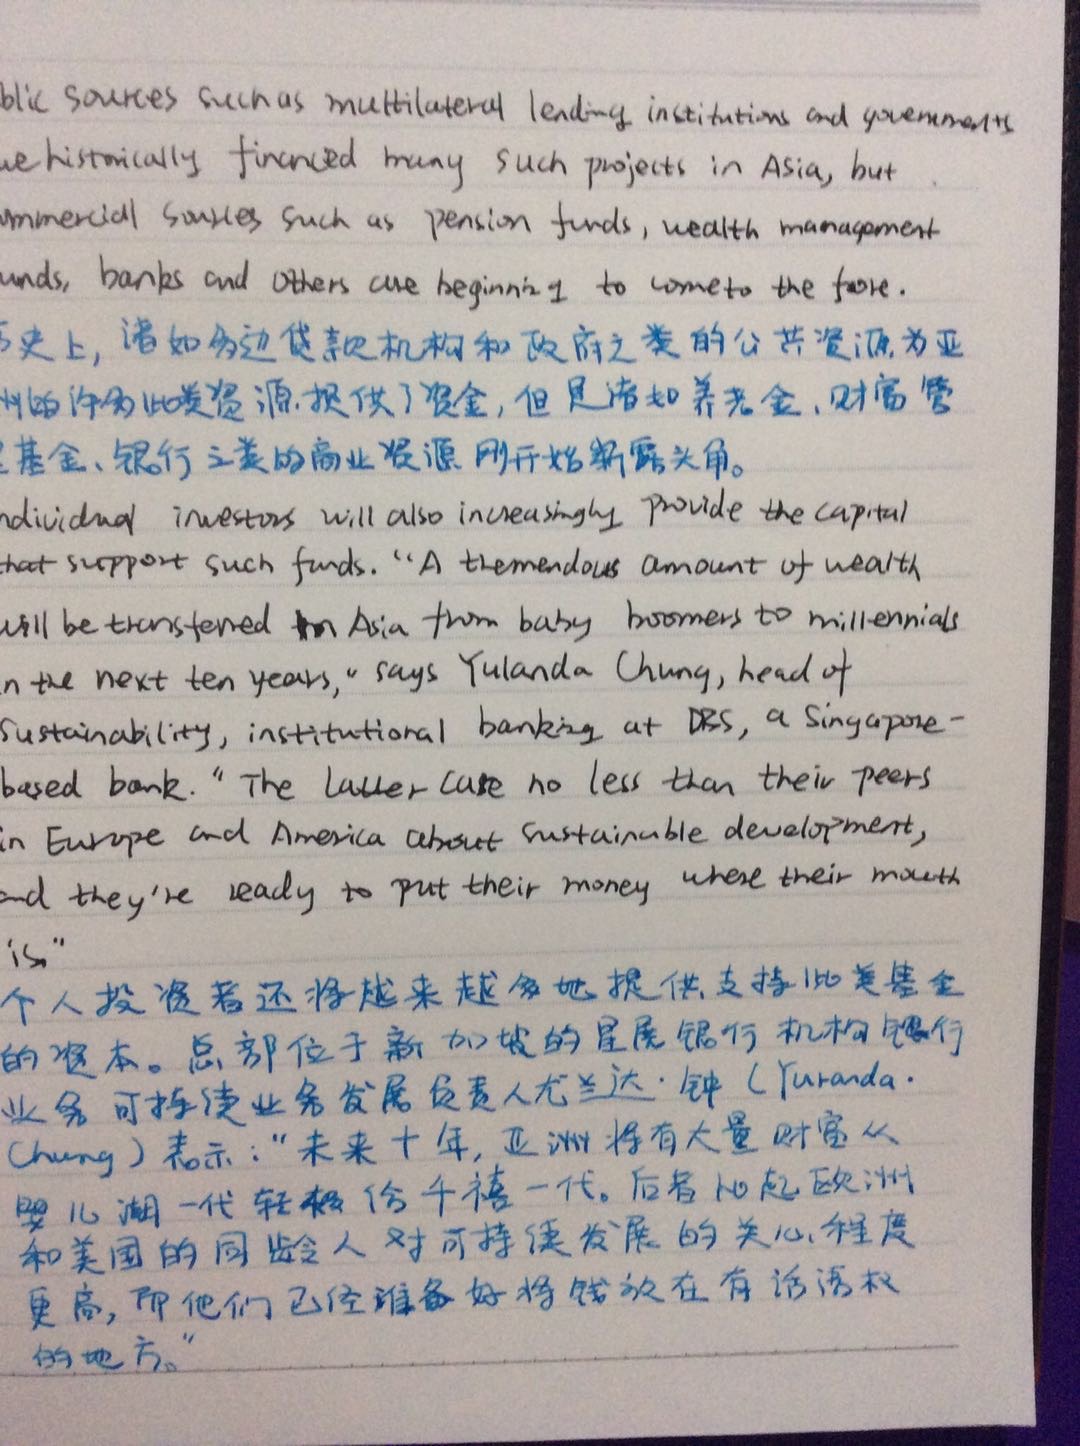 blic sources such as multilateral lending institutions and governments
ve historically financed many such projects in Asia, but
ommercial sources such as pension funds, wealth management
unds, banks and others are beginning to come to the fore.
历史上，诸如多边贷款机构和政府之类的公共资源为亚
州的许多此类资源提供了资金，但是诸如养老金、财富管
理基金、银行之类的商业资源刚开始崭露头角。
ndividual investors will also increasingly provide the capital
that support such funds. "A tremendous amount of wealth
will be transferred in Asia from baby boomers to millennials
in the next ten years," says Yulanda Chung, head of
sustainability, institutional banking at DBS, a Singapore-
based bank. "The latter care no less than their peers
in Europe and America about sustainable development,
and they're ready to put their money where their mouth
is."
个人投资者还将越来越多地提供支持此类基金
的资本。总部位于新加坡的星展银行机构银行
业务可持续业务发展负责人尤兰达·钟（Yuranda·
Chung）表示："未来十年，亚洲将有大量财富从
婴儿潮一代转移给千禧一代。后者比起欧洲
和美国的同龄人对可持续发展的关心程度
更高，即他们已经准备好将钱放在有话语权
的地方。"